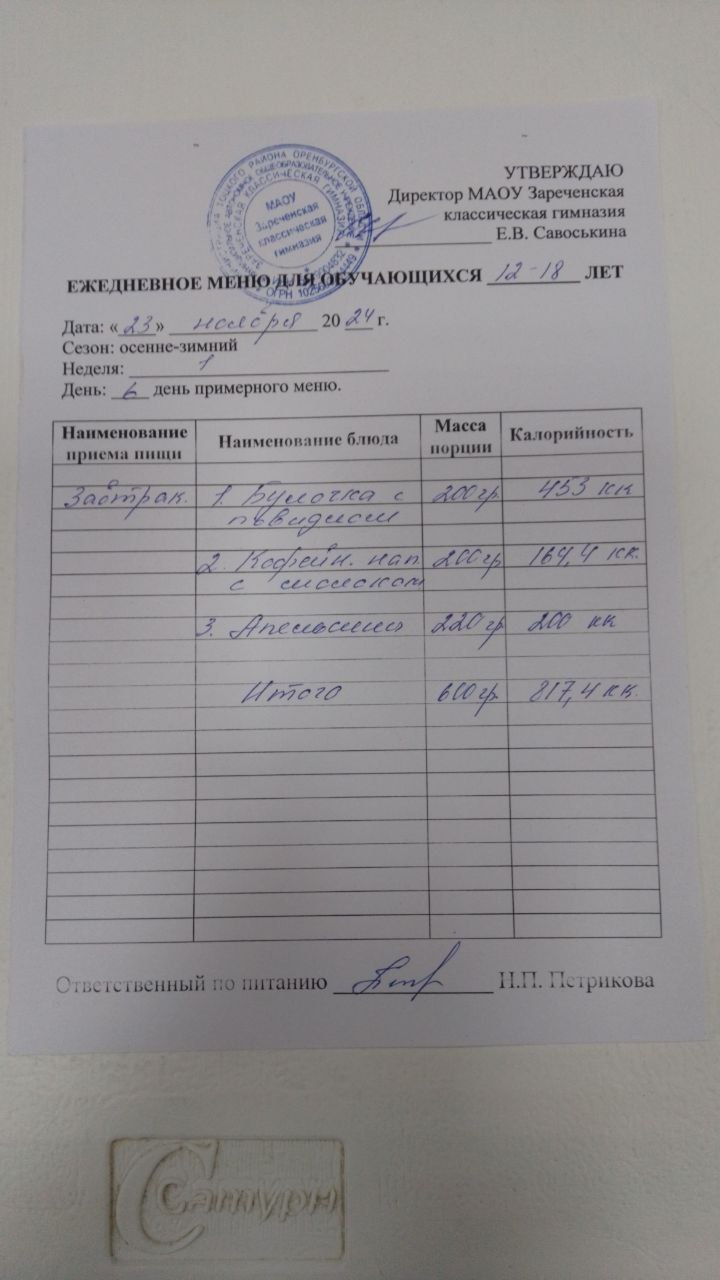 УТВЕРЖДАЮ
Директор МАОУ Зареченская
классическая гимназия
Е.В. Савоськина
МАОУ
Зареченская
классическая
гимназия
ЕЖЕДНЕВНОЕ МЕНЮ ДЛЯ ОБУЧАЮЩИХСЯ 12-18 ЛЕТ
Дата: «23» ноября 2024 г.
Сезон: осенне-зимний
Неделя: 1
День: 6 день примерного меню.
Наименование приема пищи Наименование блюда Масса порции Калорийность
Завтрак. 1. Булочка с 200гр 453 кк
повидлом
2. Кофейн. нап. 200гр 164,4 кк.
с молоком
3. Апельсин 220гр 200 кк
Итого 817,4 кк.
Ответственный по питанию Н.П. Петрикова
Сатурн